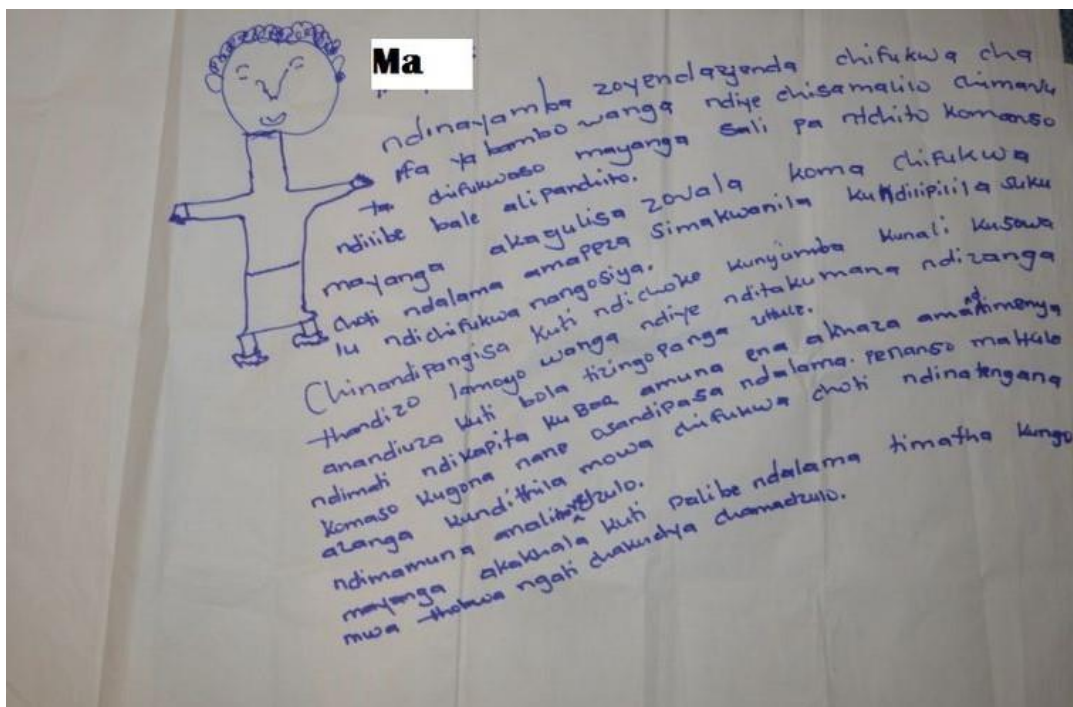 Ma
ndinayamba zoyendayenda chifukwa cha
mfa ya bambo wanga ndiye chisamaliro chimavu
ta chifukwaso mayanga sali pa ntchito komanso
ndilibe bale alipanchito.
mayanga akagulisa zovala koma chifukwa
choti ndalama amapeza simakwanila kundilipilila suku
lu ndichifukwa nangosiya.
Chinandipangisa kuti ndichoke kunyumba kunali kusowa
thandizo lamoyo wanga ndiye nditakumana ndizanga
anandiuza kuti bola tizingopanga uhule.
ndimati ndikapita kuBar amuna ena akhaza amandimenya
komaso kugona nane osandipasa ndalama. Penanso mahule
azanga kundithila mowa chifukwa choti ndinatengana
ndimamuna analinayedzulo.
mayanga akakhala kuti palibe ndalama timatha kungo
mwa thobwa ngati chakudya chamadzulo.